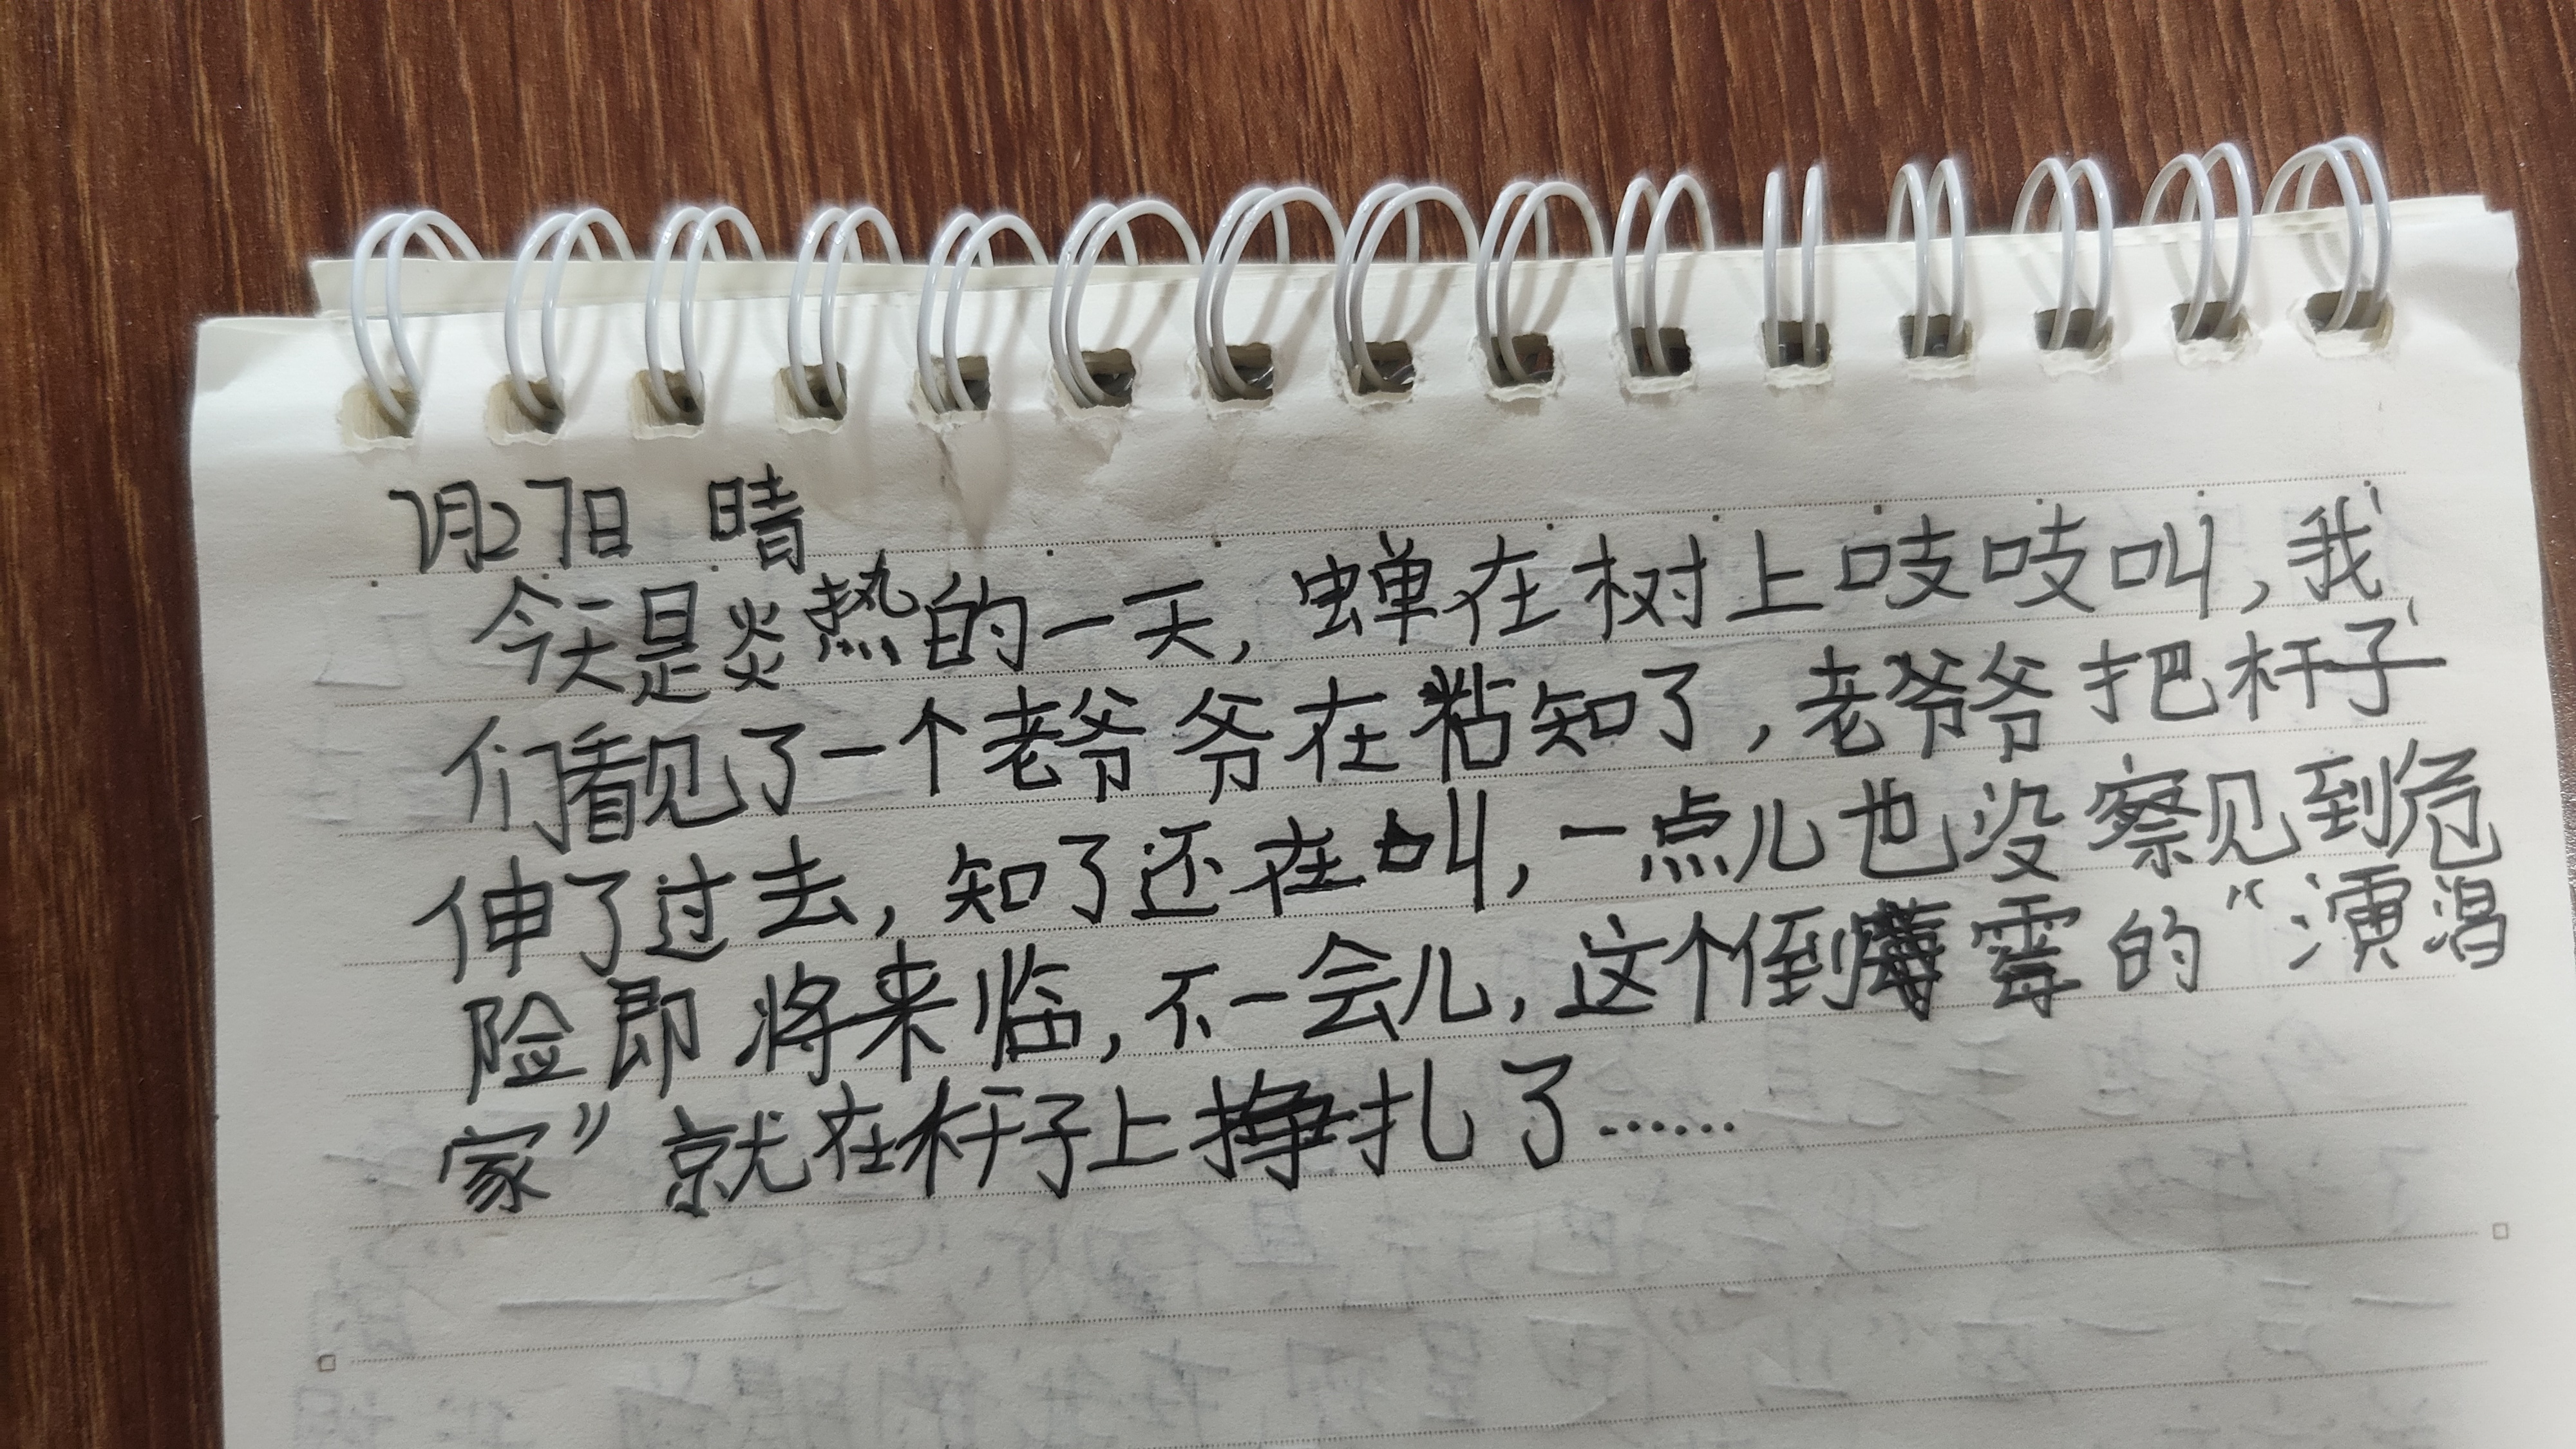 7月27日 晴
今天是炎热的一天,蝉在树上吱吱叫,我
们看见了一个老爷爷在粘知了,老爷爷把杆子
伸了过去,知了还在叫,一点儿也没察见到危
险即将来临,不一会儿,这个倒霉的“演唱
家”就在杆子上挣扎了……